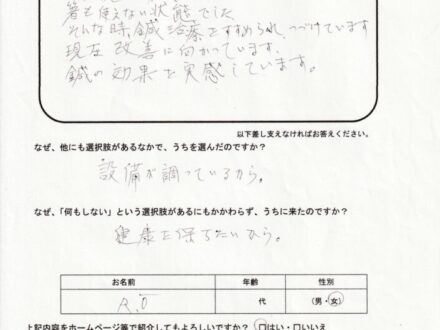 箸も使えない状態でした
そんな時、鍼治療をすすめられ、つづけています
現在改善に向かっています。
鍼の効果を実感しています。
以下差し支えなければお答えください。
なぜ、他にも選択肢があるなかで、うちを選んだのですか？
設備が調っているから。
なぜ、「何もしない」という選択肢があるにもかかわらず、うちに来たのですか？
健康を保ちたいから。
お名前 年齢 性別
代 （男・女）
上記内容をホームページ等で紹介してもよろしいですか？ □はい・□いいえ